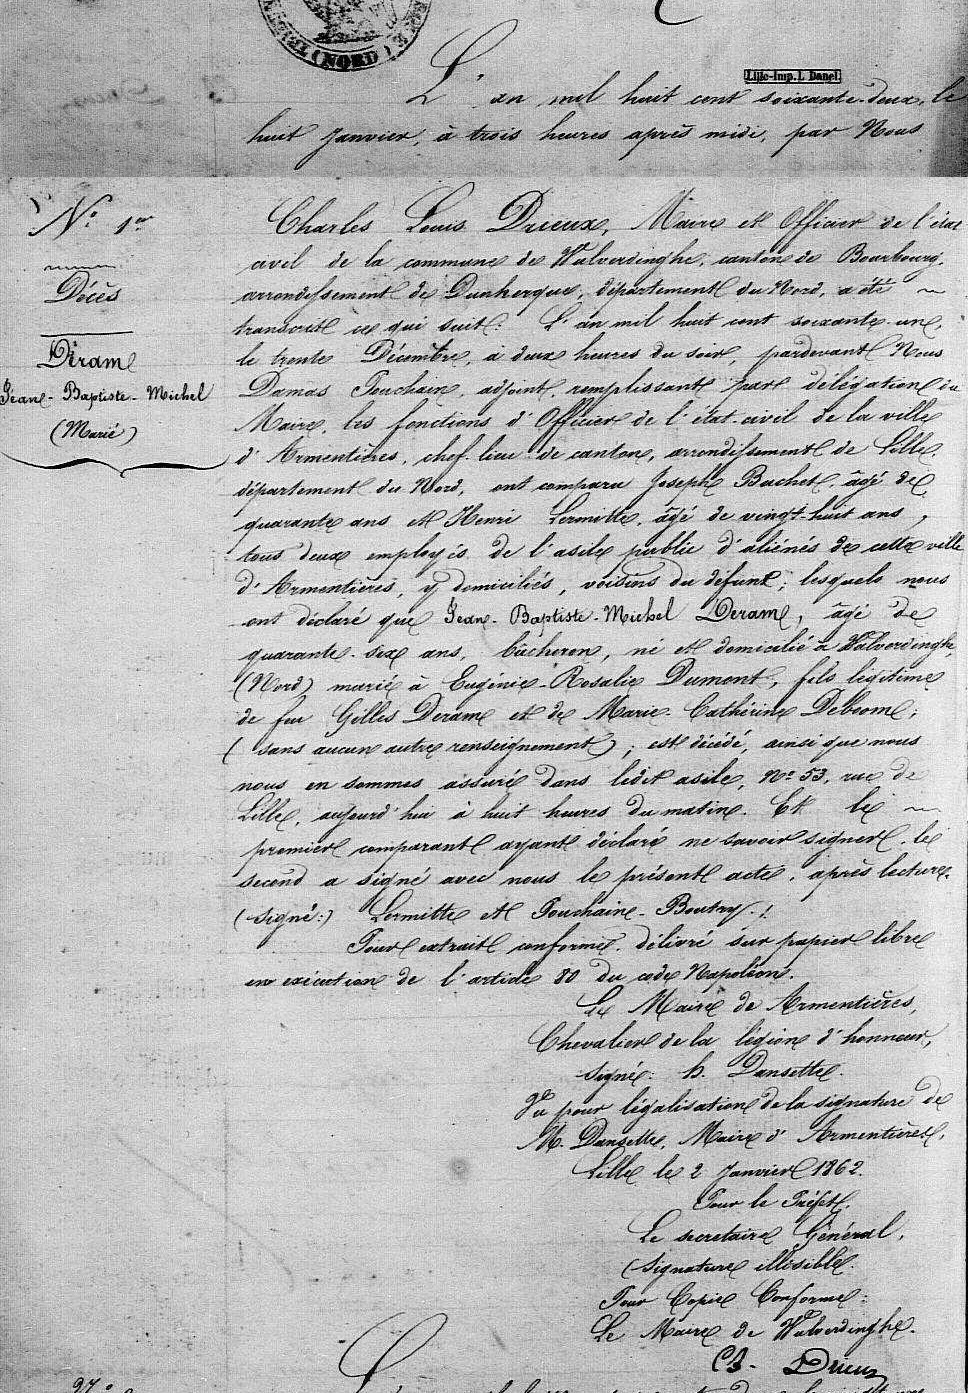 (NORD)
Lille-Imp. L. Danel
L'an mil huit cent soixante-deux, le
huit Janvier, à trois heures après midi, par Nous
N.° 1er
Décès
Dérame
Jéane-Baptiste-Michel
(Marié)
Charles Louis Drieux, Maire et Officier de l'état
civil de la commune de Wulverdinghe, canton de Bourbourg,
arrondissement de Dunkerque, département du Nord, a été
transcrit ce qui suit: L'an mil huit cent soixante-un,
le trente Décembre, à deux heures du soir, pardevant Nous
Damas Fouchain, adjoint, remplissant par délégation du
Maire, les fonctions d'Officier de l'état-civil de la ville
d'Armentières, chef-lieu de canton, arrondissement de Lille,
département du Nord, ont comparu Joseph Bachet, âgé de
quarante ans et Henri Lermitte, âgé de vingt-huit ans,
tous deux employés de l'asile public d'aliénés de cette ville
d'Armentières, y domiciliés, voisins du défunt; lesquels nous
ont déclaré que Jean-Baptiste-Michel Derame, âgé de
quarante-six ans, bûcheron, né et domicilié à Wulverdinghe,
(Nord) marié à Eugénie-Rosalie Dumont, fils légitime
de feu Gilles Derame et de Marie-Cathérine Debrome;
(sans aucun autre renseignement); est décédé, ainsi que nous
nous en sommes assuré dans ledit asile, N° 53, rue de
Lille, aujourd'hui à huit heures du matin. Et le
premier comparant ayant déclaré ne savoir signer, le
second a signé avec nous le présent acte, après lecture.
(Signé:) Lermitte et Fouchaine-Boutry./.
Pour extrait conforme, délivré sur papier libre
en exécution de l'article 80 du code Napoléon.
Le Maire de Armentières,
Chevalier de la légion d'honneur,
Signé: h. Dansette.
Vu pour légalisation de la signature de
M. Dansette, Maire d'Armentières,
Lille le 2 Janvier 1862.
Pour le Préfet,
Le secrétaire Général,
(Signature illisible.
Pour Copie Conforme:
Le Maire de Wulverdinghe.
Ch. Drieux